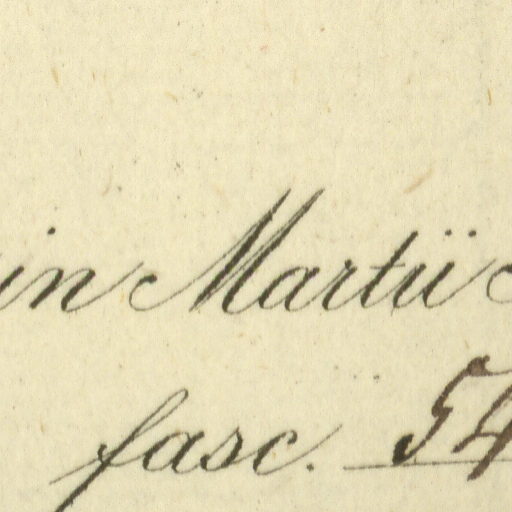 in Martii
fasc. 54